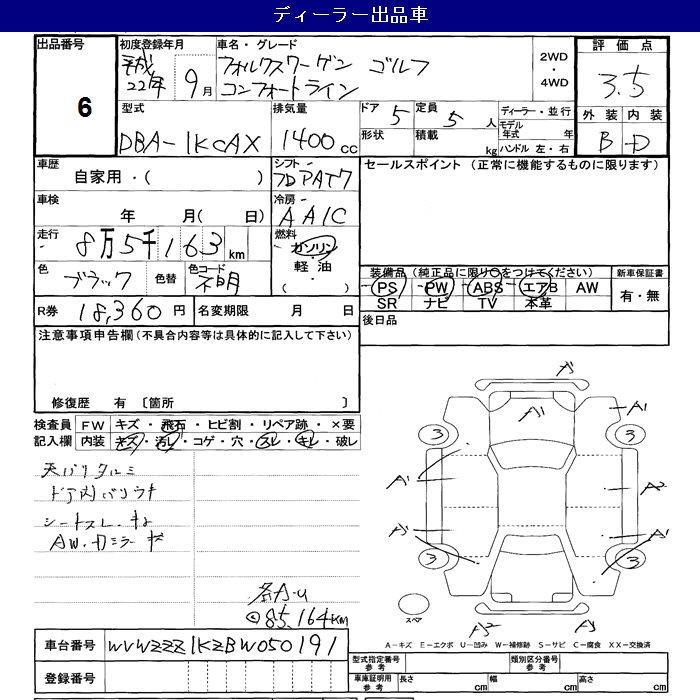 ディーラー出品車
出品番号
6
初度登録年月
平成
22年 9月
車名・グレード
フォルクスワーゲン ゴルフ
コンフォートライン
2WD
・
4WD
評価点
3.5
外装 内装
B D
型式
DBA-1KCAX
排気量
1400cc
ドア 5
定員 5人
形状
積載 kg
ディーラー・並行
モデル年式 年
ハンドル 左・右
車歴
自家用・( )
シフト
フロアAT7
セールスポイント (正常に機能するものに限ります)
車検
年 月( 日)
冷房
AAIC
走行
8万5千163km
燃料
ガソリン
軽油
( )
色
ブラック
色替
色コード
不明
装備品 (純正品に限り○をつけてください)
PS PW ABS エアB AW
SR ナビ TV 本革
新車保証書
有・無
R券 18,360円
名変期限 月 日
後日品
注意事項申告欄(不具合内容等は具体的に記入して下さい)
修復歴 有 〔箇所 〕
検査員記入欄
FW キズ・飛石・ヒビ割・リペア跡・×要
内装 キズ・汚レ・コゲ・穴・スレ・キレ・破レ
天バリタルミ
ドア内バリウキ
シートスレ・キレ
AW・カミラーキズ
85,164KM
車台番号 WVWZZZ1KZBW050191
登録番号
A1
A1
3
3
A1
A2
A1
3
3
スペア
A2
A-キズ E-エクボ U-凹み W-補修跡 S-サビ C-腐食 XX-交換済
型式指定番号
参考
類別区分番号
参考
車庫証明用
参考
長さ cm
幅 cm
高さ cm